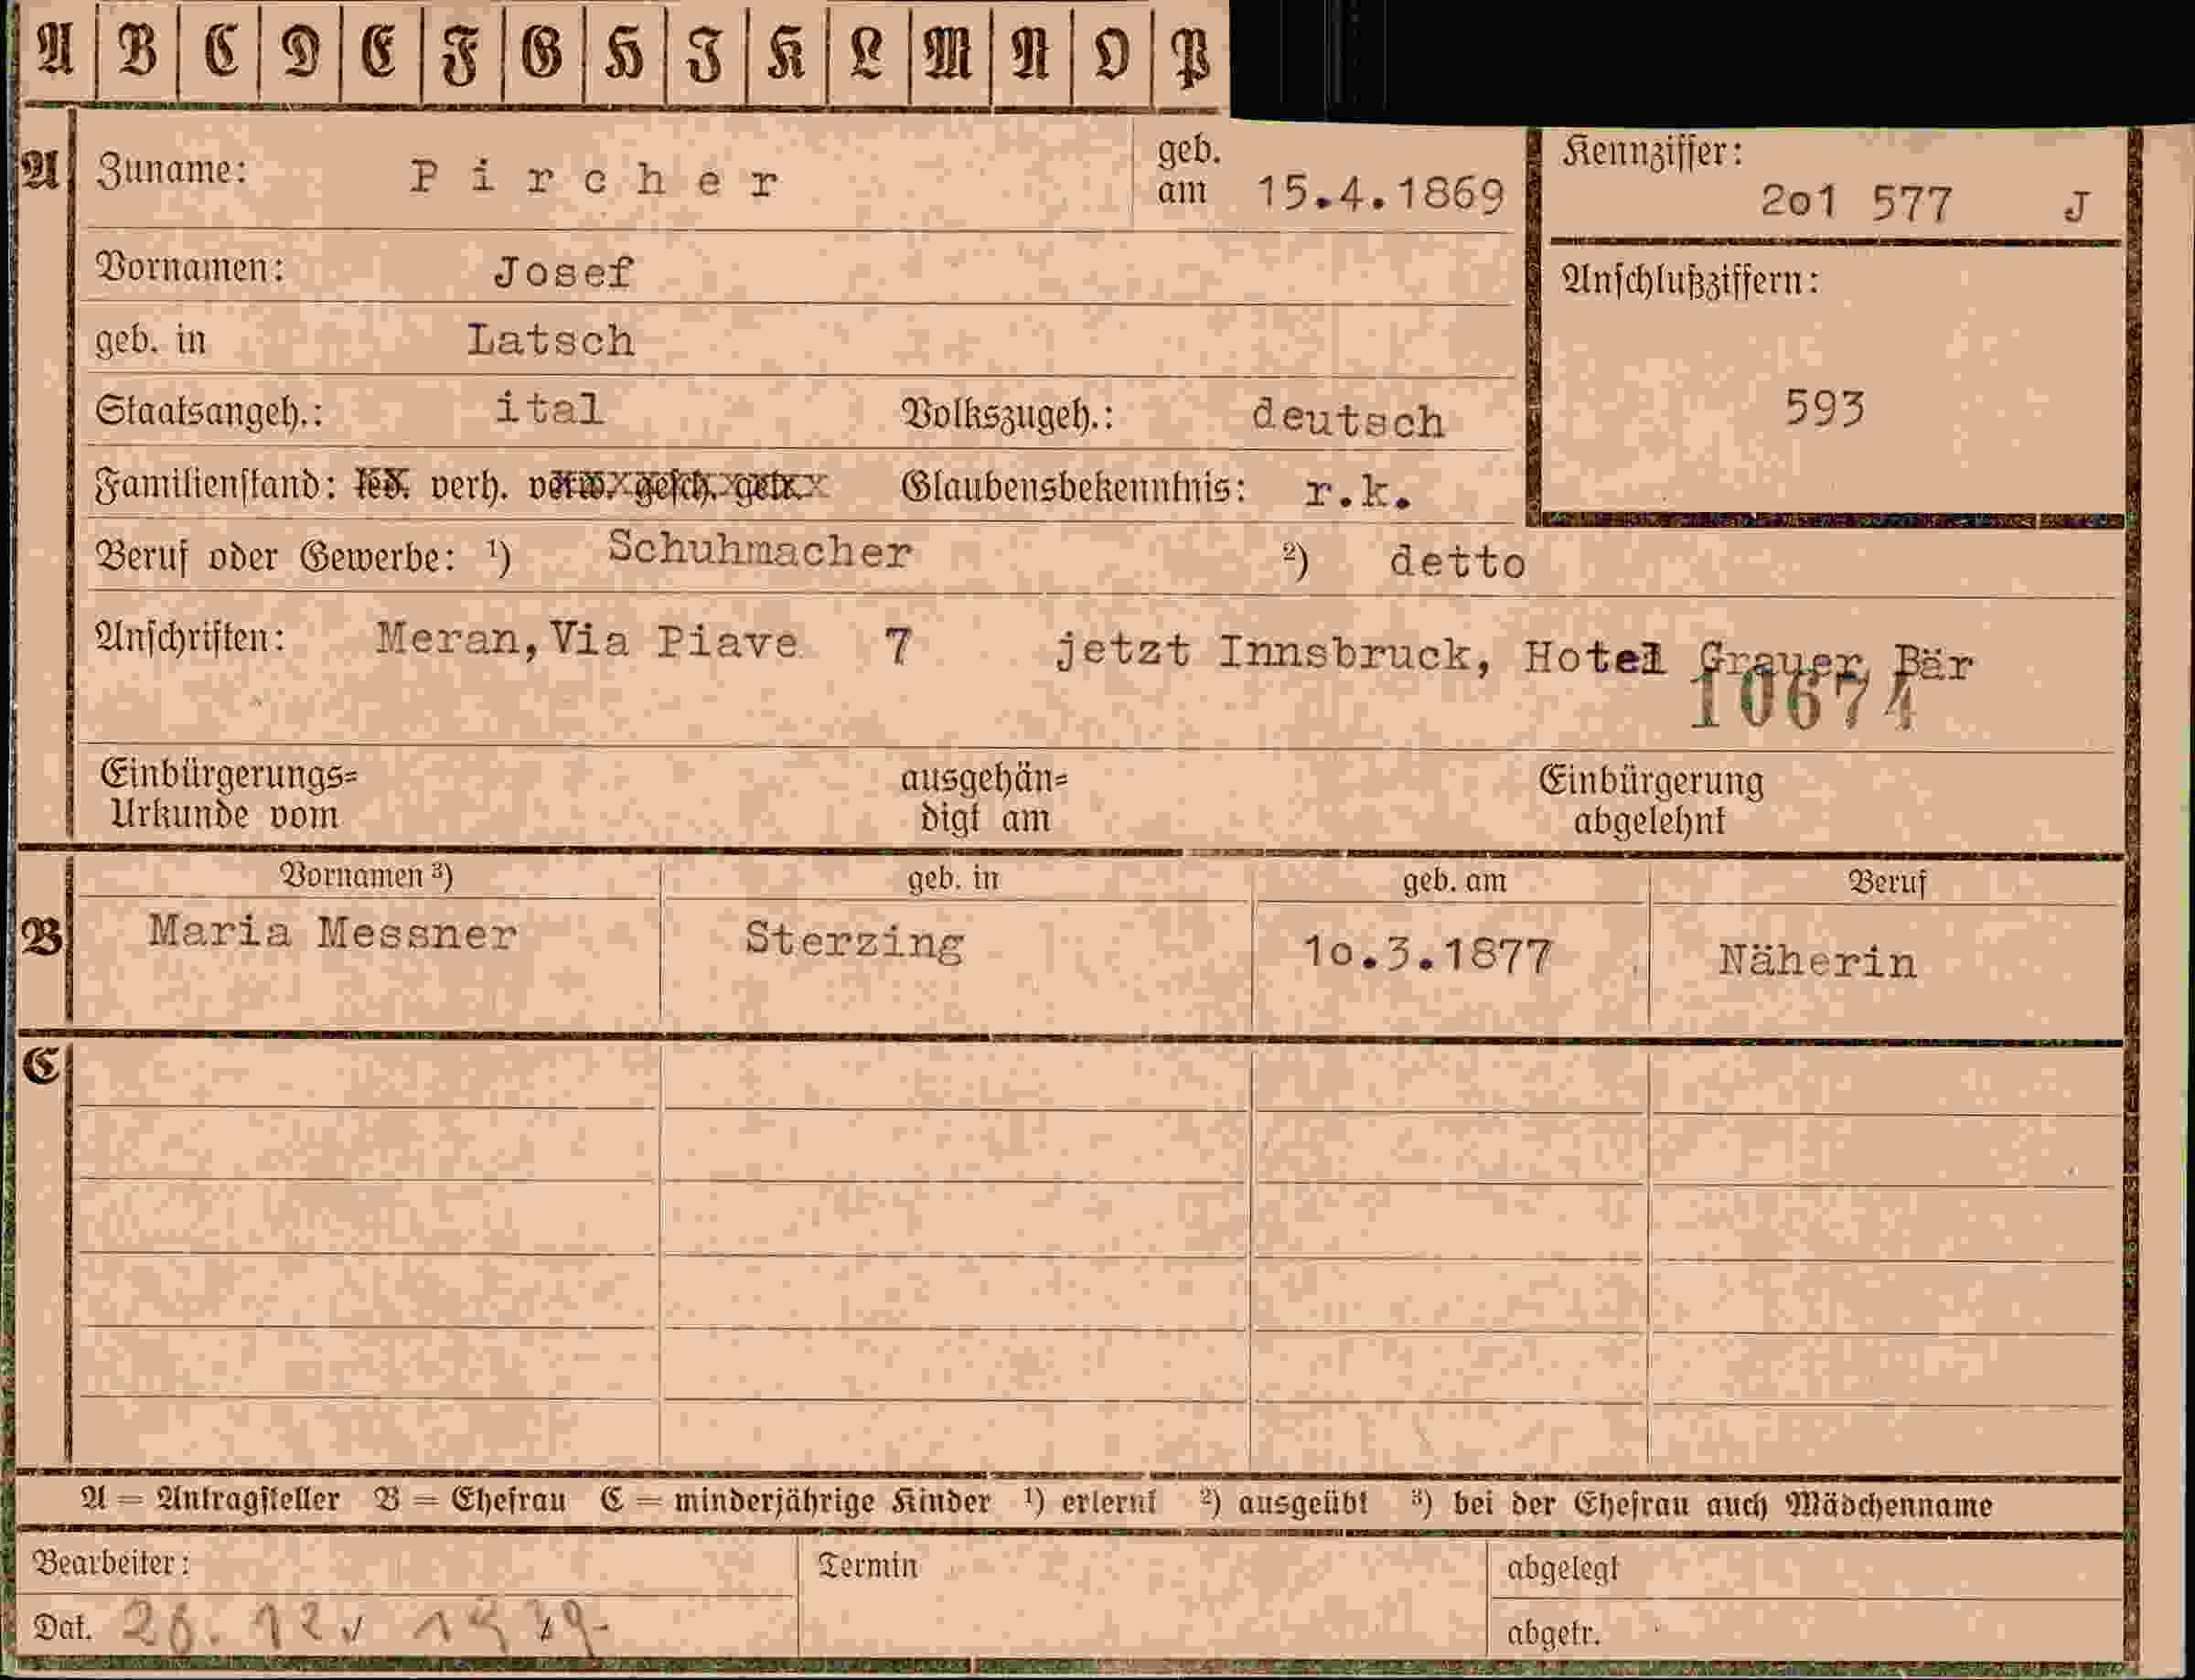 A B C D E F G H I K L M N O P
A Zuname: Pircher geb. am 15.4.1869 Kennziffer: 2o1 577 J
Vornamen: Josef Anschlußziffern:
geb. in Latsch
Staatsangeh.: ital Volkszugeh.: deutsch 593
Familienstand: led. verh. verw. gesch. getr. Glaubensbekenntnis: r.k.
Beruf oder Gewerbe: ¹) Schuhmacher ²) detto
Anschriften: Meran, Via Piave 7 jetzt Innsbruck, Hotel Grauer Bär
10674
Einbürgerungs= ausgehän= Einbürgerung
Urkunde vom digt am abgelehnt
Vornamen ³) geb. in geb. am Beruf
B Maria Messner Sterzing 1o.3.1877 Näherin
C
A = Antragsteller B = Ehefrau C = minderjährige Kinder ¹) erlernt ²) ausgeübt ³) bei der Ehefrau auch Mädchenname
Bearbeiter: Termin abgelegt
Dat. 12. 1939 abgetr.